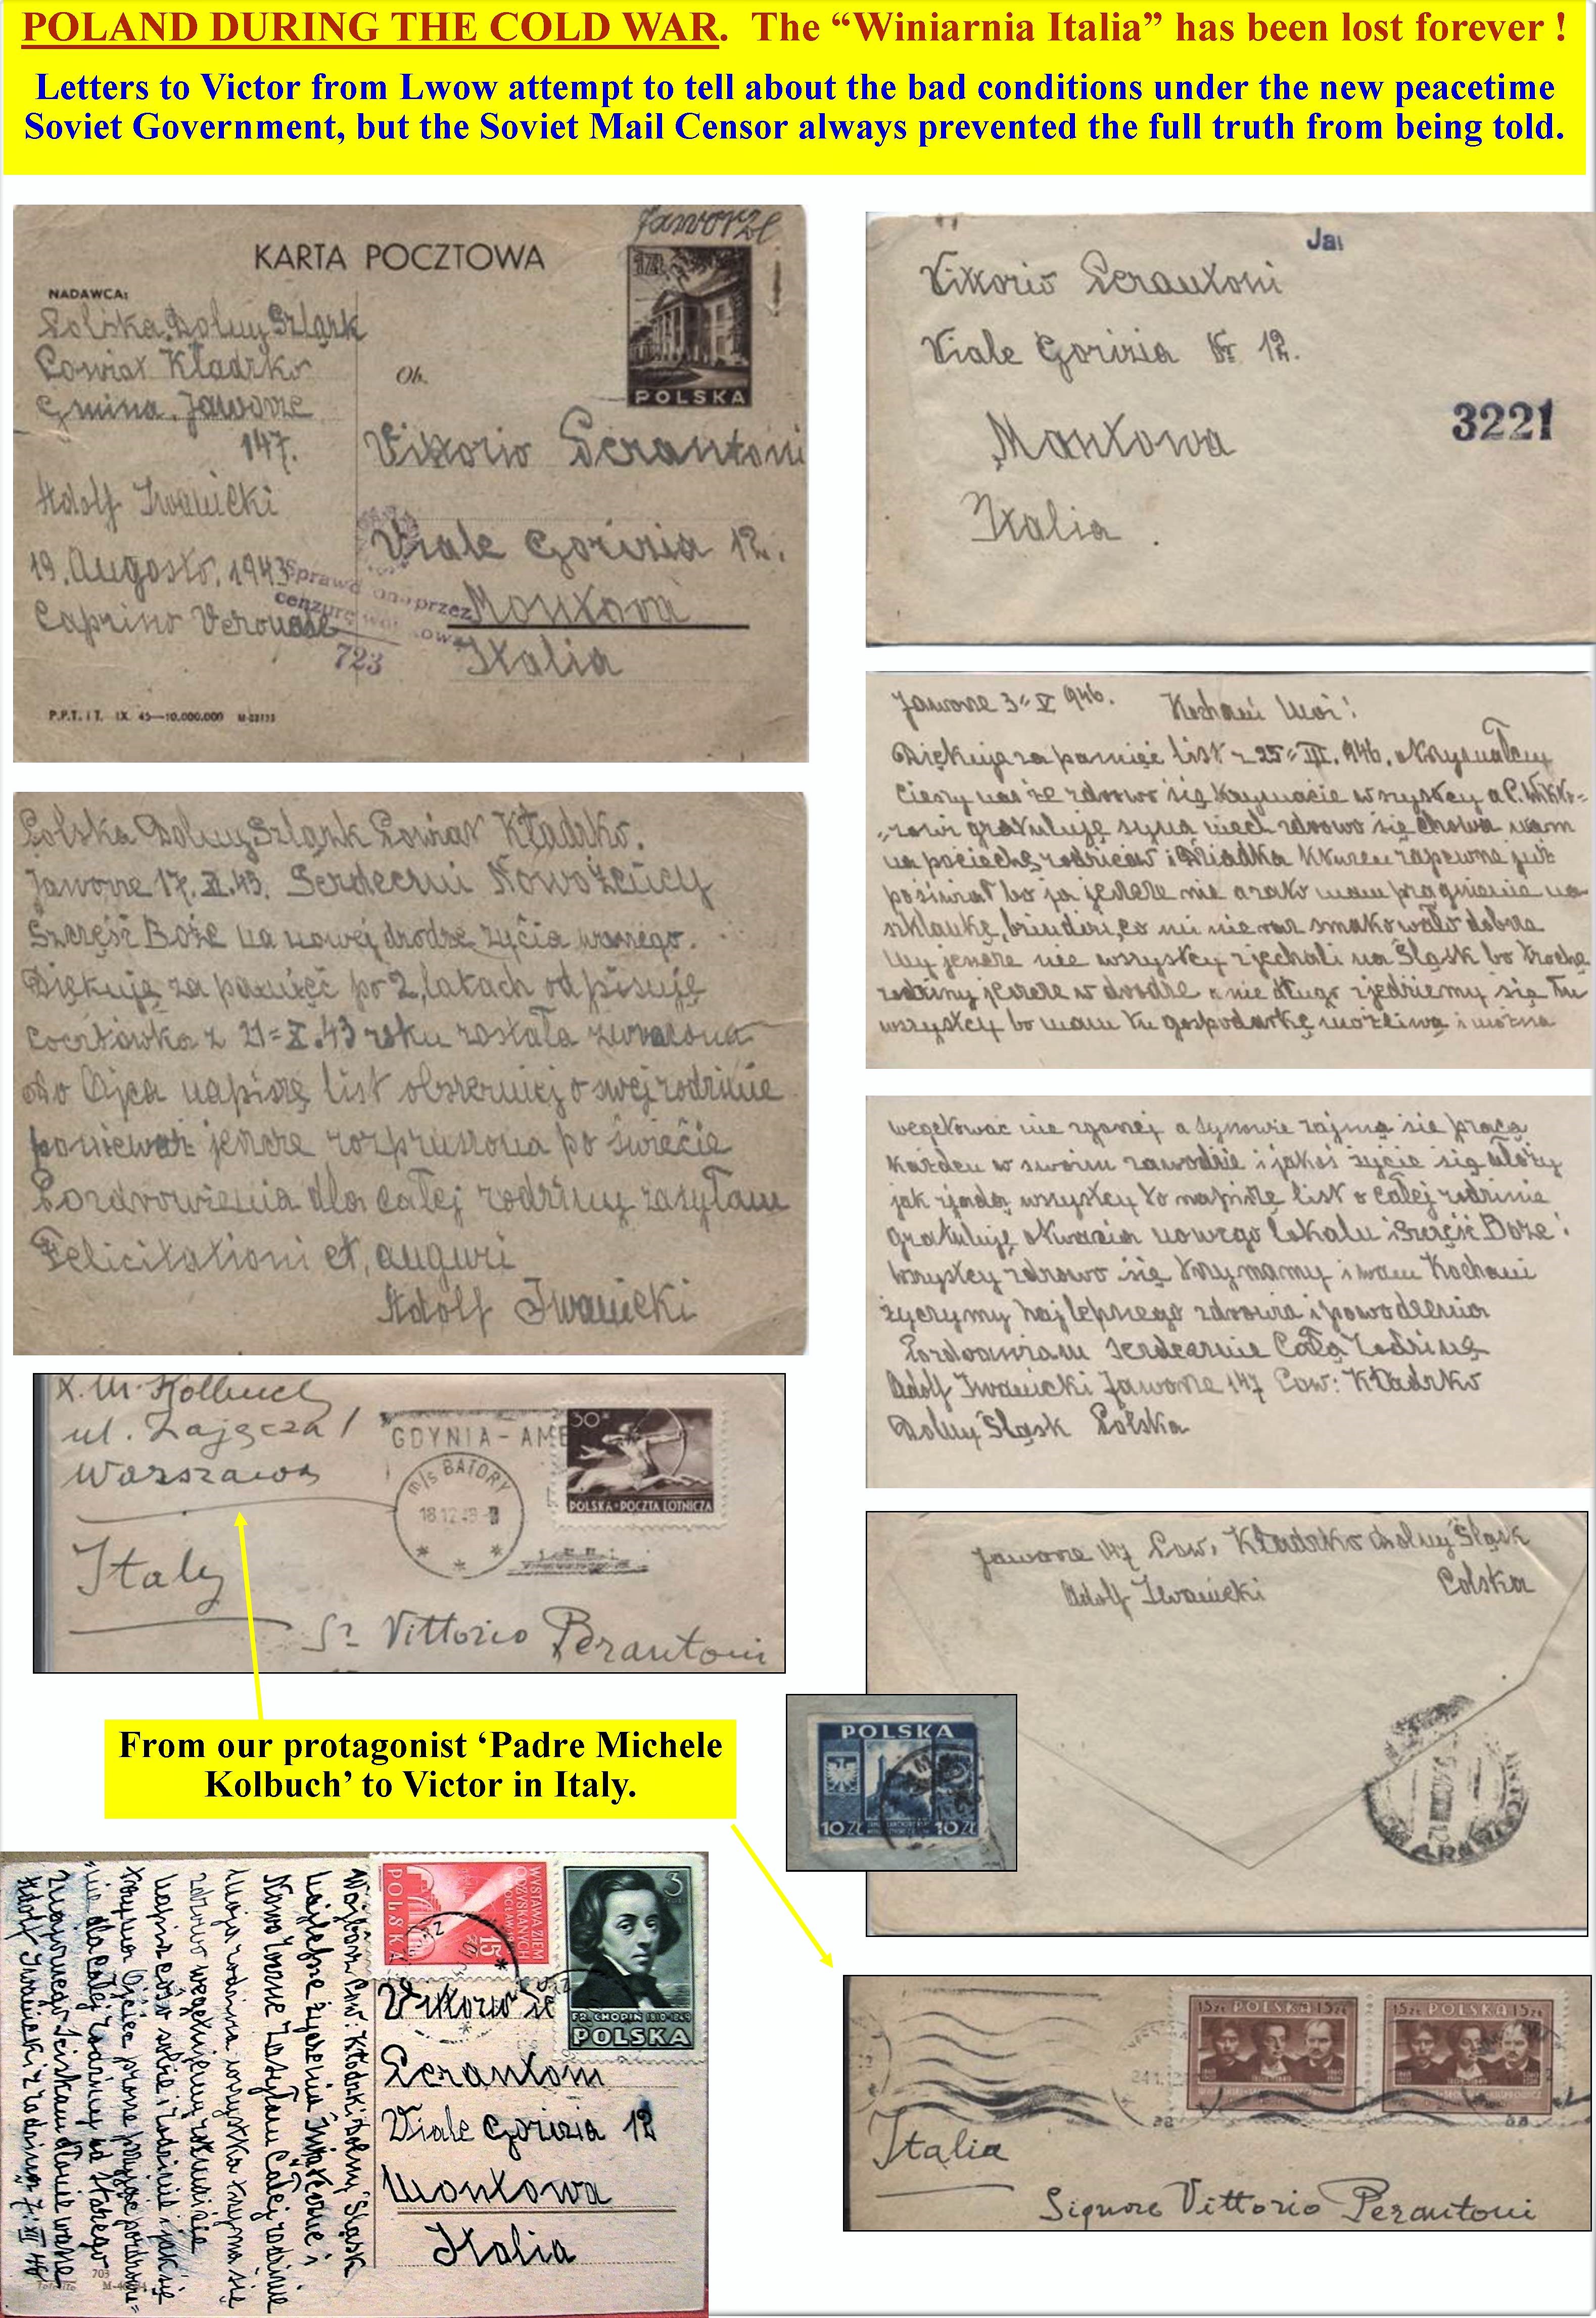 POLAND DURING THE COLD WAR. The “Winiarnia Italia” has been lost forever !
Letters to Victor from Lwow attempt to tell about the bad conditions under the new peacetime
Soviet Government, but the Soviet Mail Censor always prevented the full truth from being told.
Jaworze
KARTA POCZTOWA
NADAWCA:
Polska Dolny Szląsk
Powiat Kładzko
Gmina. Jaworze
147.
Adolf Iwanicki
19. Augosto. 1943
Caprino Veronese
Ob.
POLSKA
Vittorio Perantoni
Viale Gorizia 12.
Montova
Italia
cenzurę
723
P.P.T. i T. IX. 45—10.000.000
Polska Dolny Szląsk Powiat Kładzko.
Jaworze 17. XI. 45. Serdeczni Nowożeńcy
Szczęść Boże na nowej drodze życia waszego.
Dziękuję za pamięć po 2, latach odpisuję
Pocztówka z 21=X.43 roku została zwrócona
do Ojca napiszę list obszerniej o swej rodzinie
ponieważ jeszcze rozpruszona po świecie
Pozdrowienia dla całej rodziny zasyłam
Felicitationi et, auguri
Adolf Iwanicki
X. M. Kolbuch
ul. Zajęcza 1
Warszawa
GDYNIA - AME
m/s BATORY
18.12.
POLSKA • POCZTA LOTNICZA
Italy
Sr Vittorio Perantoni
From our protagonist ‘Padre Michele
Kolbuch’ to Victor in Italy.
Wojbórz Pow: Kłodzki Dolny Śląsk
najlepsze życzenia Świąteczne i
Noworoczne Zasyłam Całej rodzinie
Moja rodzina wszystka trzyma się
zdrowo
napisz coś o sobie i rodzinie i jak się
trzyma Ojciec proszę przyjąć pozdrowie-
nia dla całej rodziny od Starego
znajomego Sciskam dłonie wasze
Adolf Iwanicki z rodziną 7. XII 48
703
WYSTAWA ZIEM
ODZYSKANYCH
15 zł
POLSKA
3
FR. CHOPIN 1810-1849
POLSKA
Vittorio
Perantoni
Viale Gorizia 12
Montowa
Italia
Jaw
Vittorio Perantoni
Viale Gorizia Nr 12.
Mantowa
Italia.
3221
Jaworze 3 V 946. Kochani Moi!
Dziękuję za pamięć list z 25 III. 946. otrzymałem
cieszy nas że zdrowo się trzymacie wszystcy a P. Wikto-
rowi gratuluję syna niech zdrowo się chowa wam
na pociechę rodziców i Dziadka któren zapewne już
posiwiał bo ja jeszcze nie a zato mam pragnienie na
szklankę, brindizi, co mi nie raz smakowało dobrze
My jeszcze nie wszystcy zjechali na Śląsk bo trochę
rodziny jeszcze w drodze a nie długo zjedziemy się tu
wszystcy bo mam tu gospodarkę możliwą i można
wegetować nie zgorzej a synowie zajmą się pracą
każden w swoim zawodzie i jakoś życie się ułoży
jak zjadą wszystcy to napiszę list o całej rodzinie
gratuluję otwarcia nowego lokalu i Szczęść Boże!
Wszystcy zdrowo się trzymamy i wam Kochani
życzymy najlepszego zdrowia i powodzenia
Pozdrawiam serdecznie Całą Rodzinę
Adolf Iwanicki Jaworze 147 Pow: Kładzko
Dolny Śląsk Polska
Jaworze 147 Pow, Kładzko Dolny Śląsk
Adolf Iwanicki Polska
POLSKA
10 ZŁ 10 ZŁ
15 ZŁ POLSKA 15 ZŁ
15 ZŁ POLSKA 15 ZŁ
Italia
Signore Vittorio Perantoni